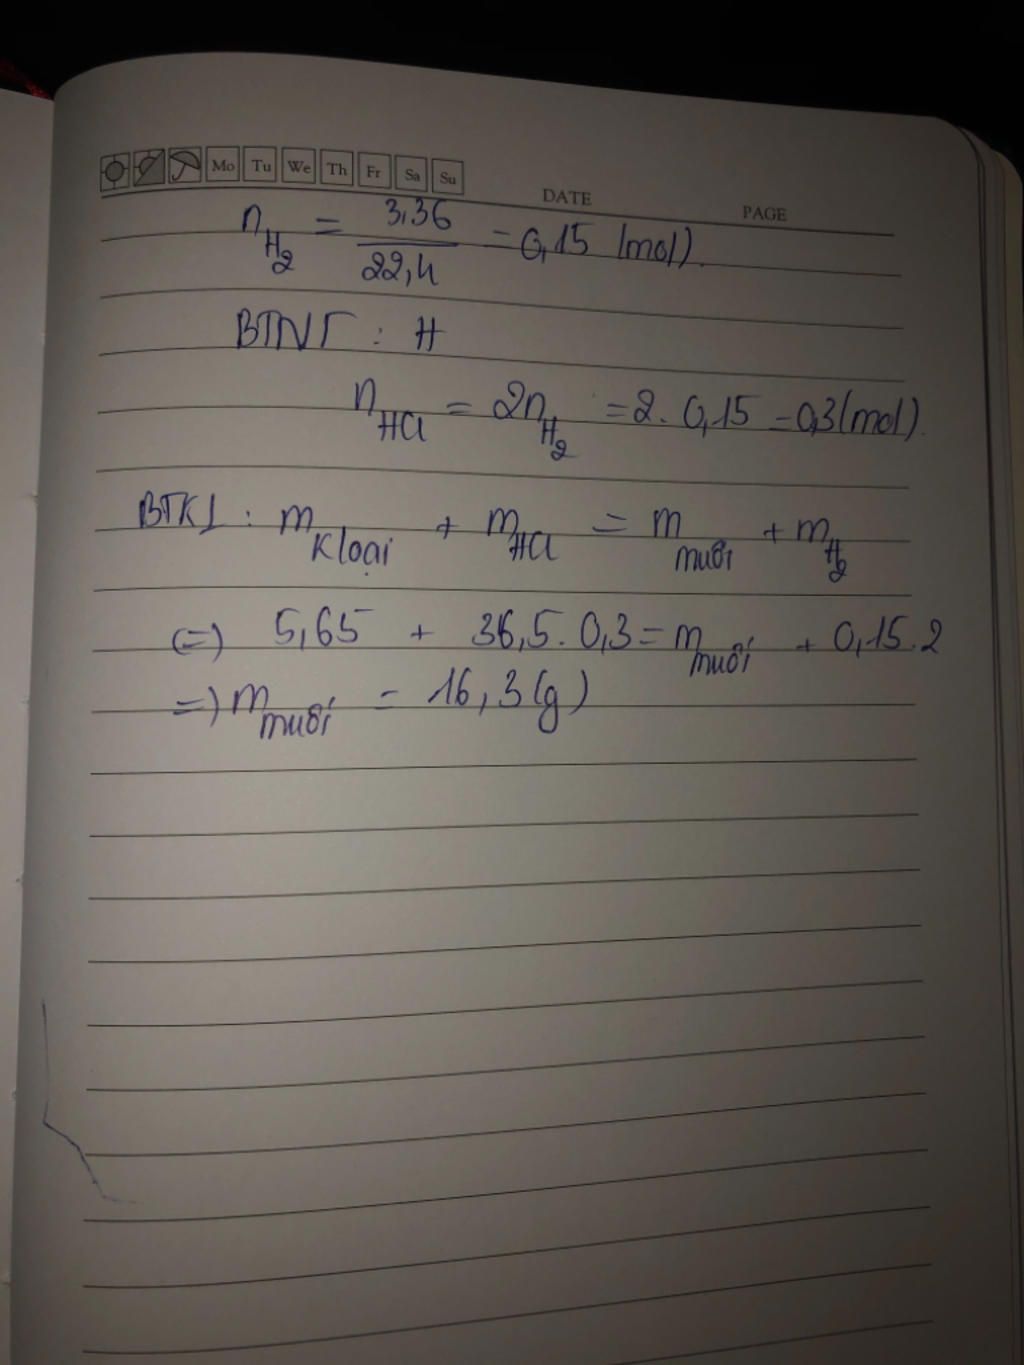 Mo Tu We Th Fr Sa Su
DATE
PAGE
n H2 = 3,36 / 22,4 = 0,15 (mol).
BTNT : H
n HCl = 2n H2 = 2. 0,15 = 0,3 (mol).
BTKL : m kloại + m HCl = m muối + m H2
(=) 5,65 + 36,5. 0,3 = m muối + 0,15.2
=) m muối = 16,3 (g)